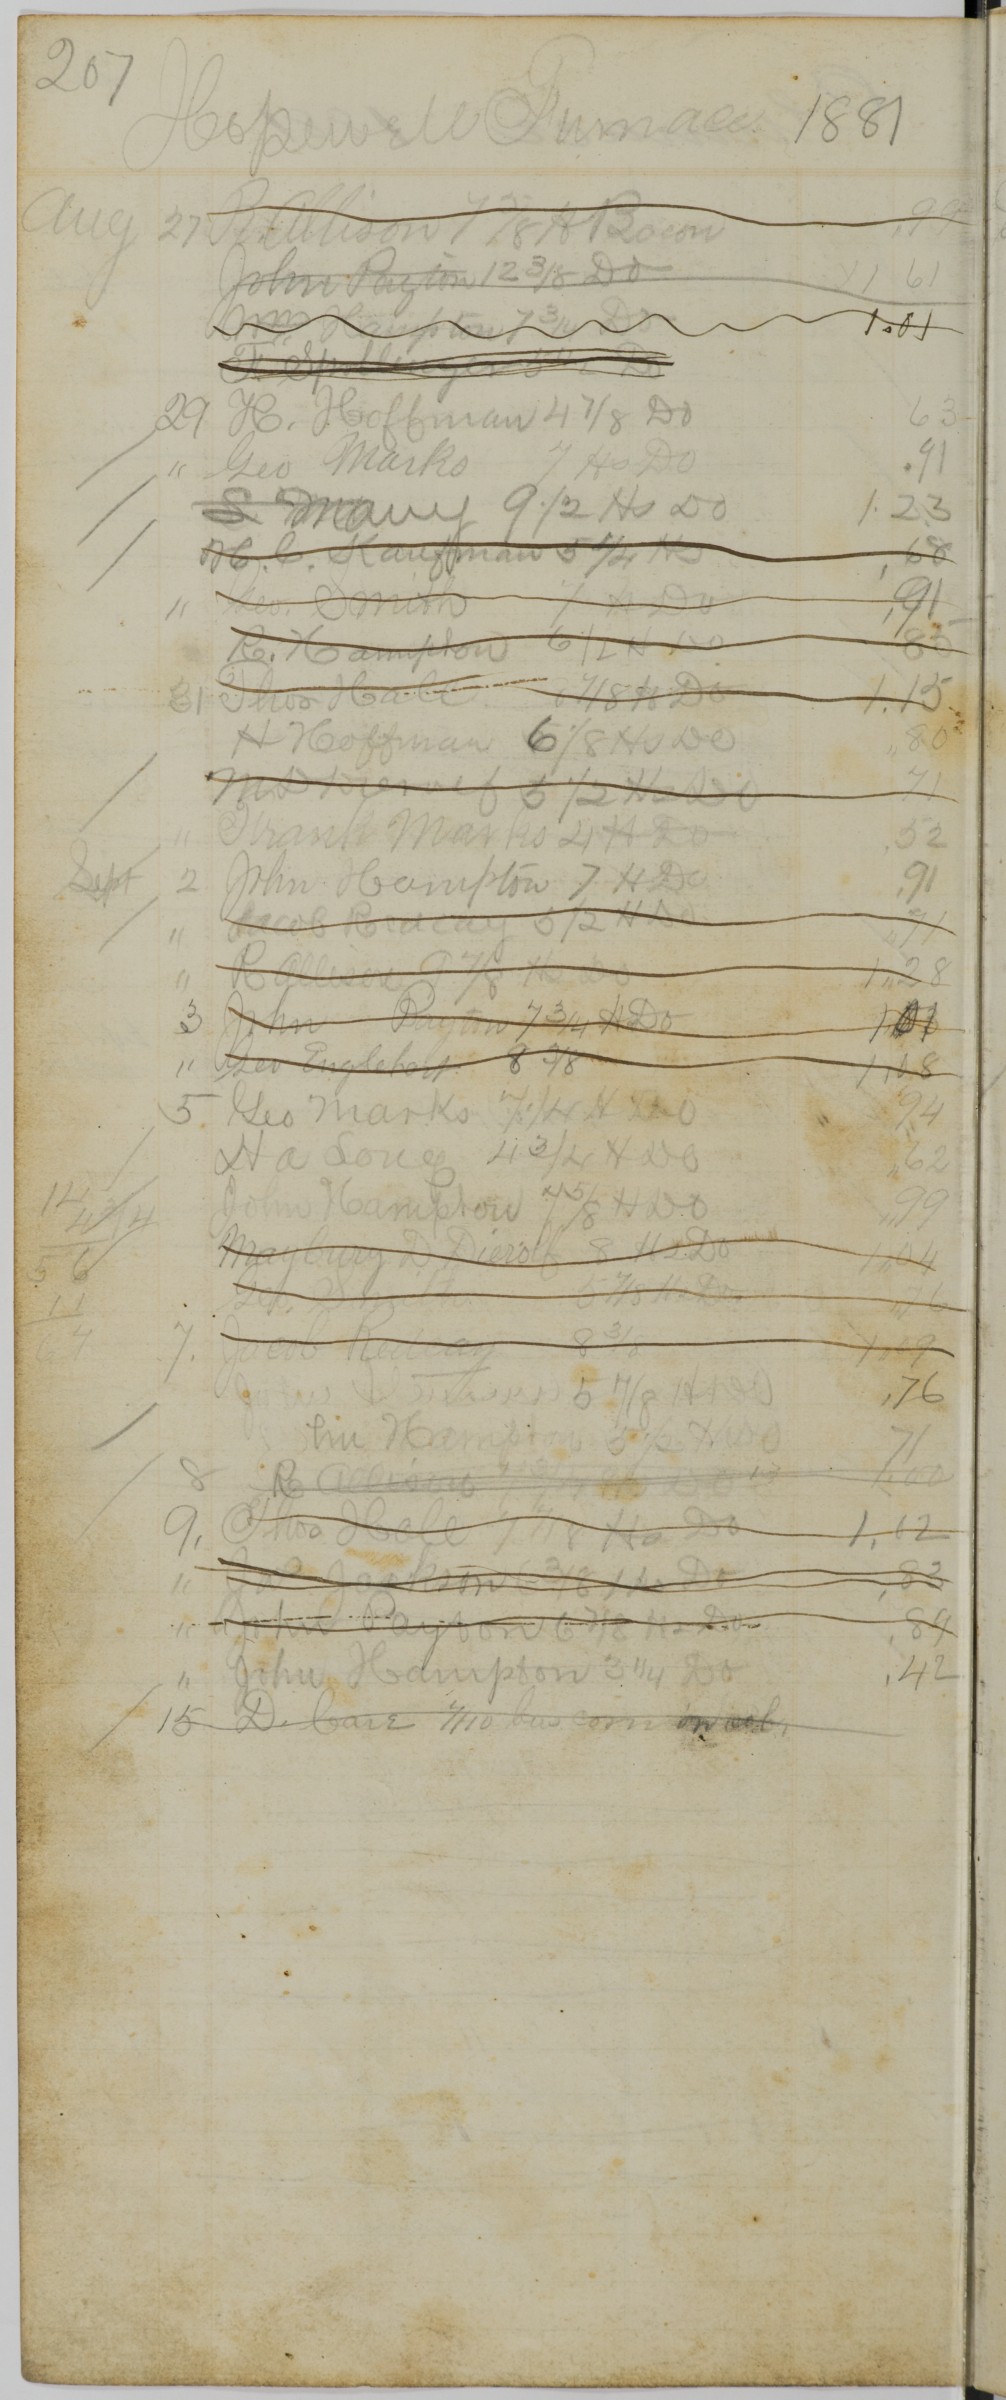 207
Hopewell Furnace 1881
Aug 27 R. Allison 7 5/8 H Bacon .99
John Payton 12 3/8 Do 1 61
Hampton 7 3/4 Do 1.01
Do
29 H. Hoffman 4 7/8 Do 63
" Geo Marks 7 Hs Do .91
S Mauy 9 1/2 Hs Do 1.23
H. C. Kauffman 5 1/4 Hs .68
" Geo. Smith 7 H Do .91
R. Hampton 6 1/2 H Do 85
31 Thos Hale 7/8 H Do 1.15
H Hoffman 6 1/8 Hs Do .80
M D Dierolf 5 1/2 Hs Do 71
" Frank Marks 4 H Do .52
Sept 2 John Hampton 7 H Do .91
" Jacob Redcay 5 1/2 H Do .71
" R Allison 9 7/8 Hs Do 1.28
3 John Payton 7 3/4 H Do 1.01
" Geo Englehart 8 3/8 1.08
5 Geo Marks 7 1/4 H Do " 94
H a Long 4 3/4 H Do .62
14
4 3/4
John Hampton 7 5/8 H Do .99
Maybury D Dierolf 8 Hs Do 1.04
5 6
Geo. Smith 5 7/8 Hs Do .76
11
64
7. Jacob Redcay 8 3/8 1.09
5 7/8 H Do .76
Hampton 5 1/2 H Do 71
8 R Allison Do 1.00
9. Thos Hale 7 7/8 Hs Do 1.02
" Jackson 6 3/8 Hs Do .83
" John Payton 6 7/8 Hs Do .84
" John Hampton 3 1/4 Do .42
15 D. Care 7/10 bus corn in cob.